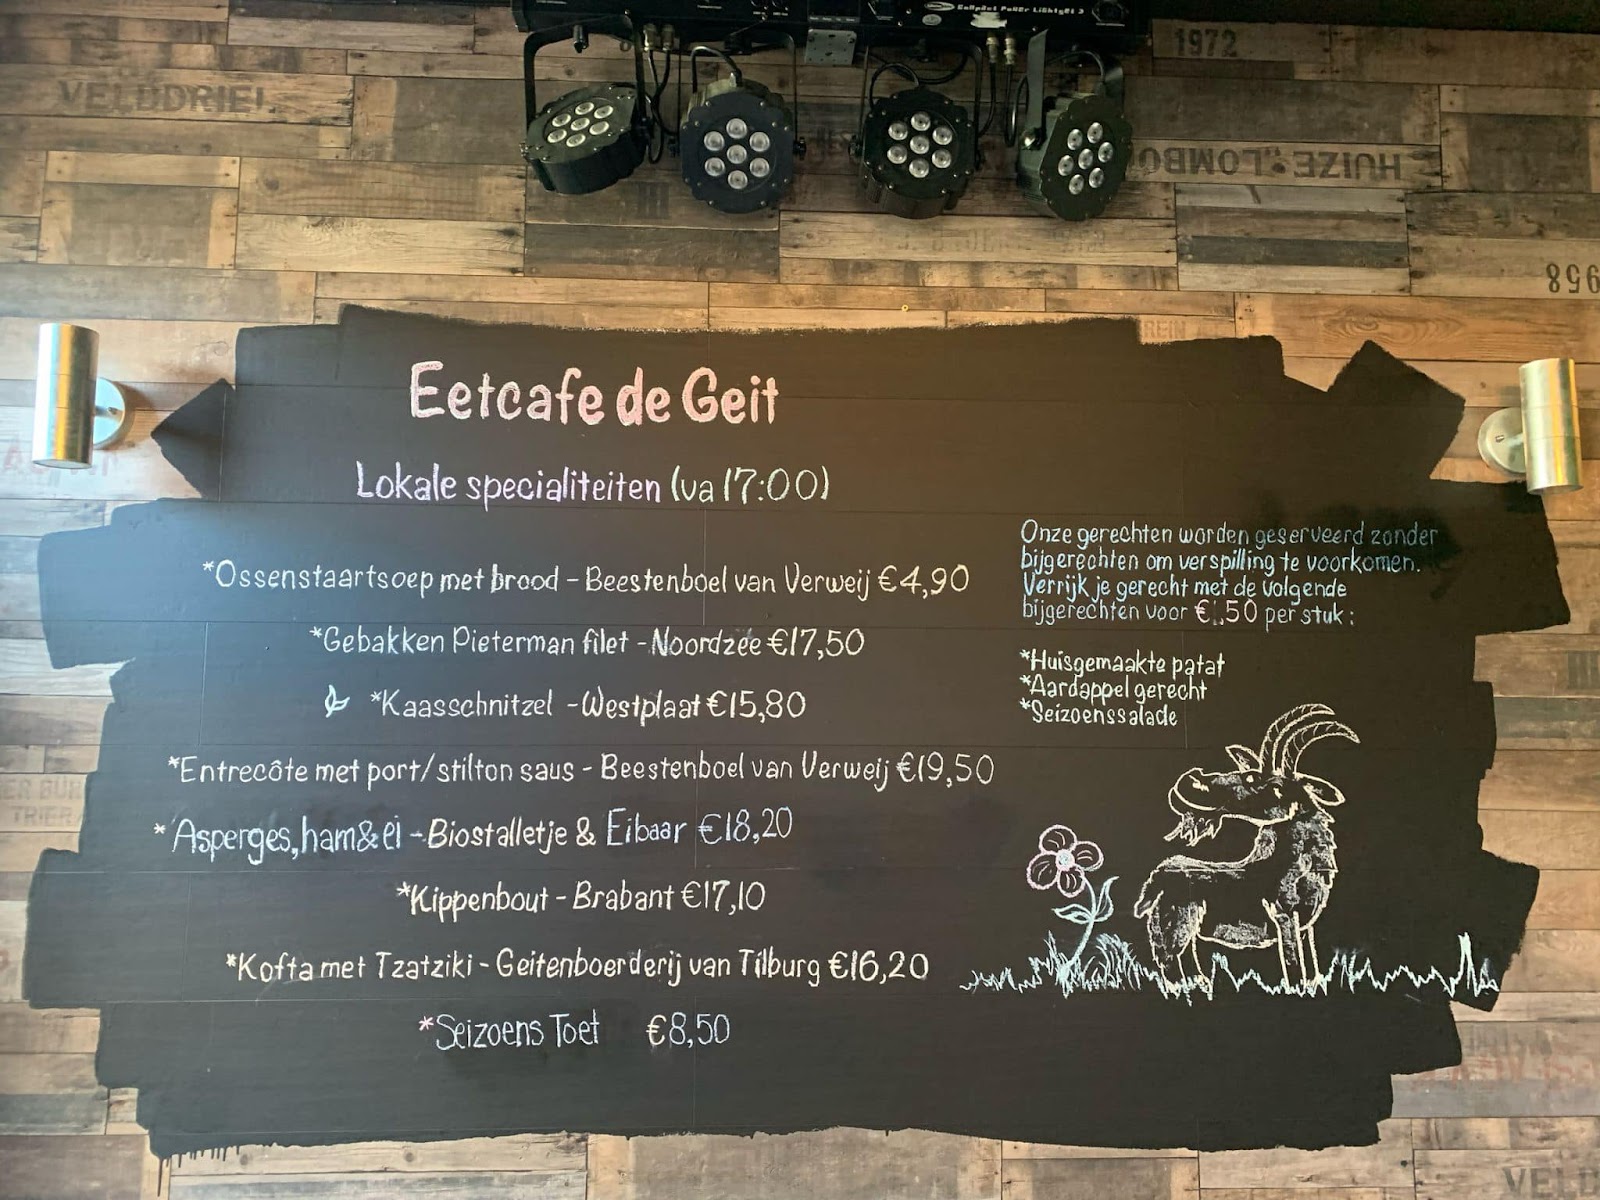 Compact Power Lightset 3
1972
VELDDRIEL
HUIZE LOMBO
958
Eetcafe de Geit
Lokale specialiteiten (va 17:00)
*Ossenstaartsoep met brood - Beestenboel van Verweij €4,90
*Gebakken Pieterman filet - Noordzee €17,50
*Kaasschnitzel - Westplaat €15,80
*Entrecôte met port/stilton saus - Beestenboel van Verweij €19,50
*Asperges, ham & ei - Biostalletje & Eibaar €18,20
*Kippenbout - Brabant €17,10
*Kofta met Tzatziki - Geitenboerderij van Tilburg €16,20
*Seizoens Toet €8,50
Onze gerechten worden geserveerd zonder
bijgerechten om verspilling te voorkomen.
Verrijk je gerecht met de volgende
bijgerechten voor €1,50 per stuk:
*Huisgemaakte patat
*Aardappel gerecht
*Seizoenssalade
VELD